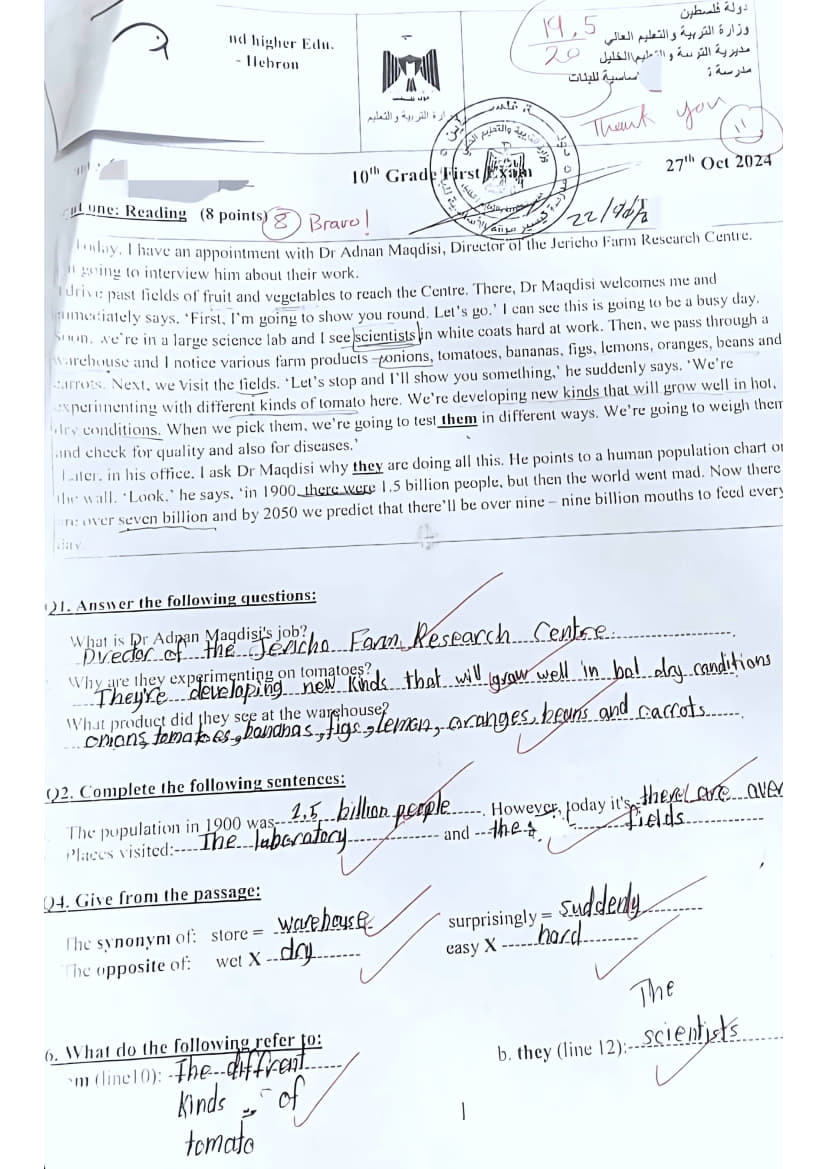 nd higher Edu.
- Hebron
دولة فلسطين
وزارة التربية والتعليم العالي
مديرية التربية والتعليم/الخليل
مدرسة
ساسية للبنات
19.5
20
Thank you
10th Grade First Exam
27th Oct 2024
one: Reading (8 points) 8 Bravo!
today, I have an appointment with Dr Adnan Maqdisi, Director of the Jericho Farm Research Centre.
going to interview him about their work.
I drive past fields of fruit and vegetables to reach the Centre. There, Dr Maqdisi welcomes me and
immediately says. ‘First, I’m going to show you round. Let’s go.’ I can see this is going to be a busy day.
Soon, we’re in a large science lab and I see scientists in white coats hard at work. Then, we pass through a
warehouse and I notice various farm products –onions, tomatoes, bananas, figs, lemons, oranges, beans and
carrots. Next, we visit the fields. ‘Let’s stop and I’ll show you something,’ he suddenly says. ‘We’re
experimenting with different kinds of tomato here. We’re developing new kinds that will grow well in hot,
dry conditions. When we pick them, we’re going to test them in different ways. We’re going to weigh them
and check for quality and also for diseases.’
Later, in his office, I ask Dr Maqdisi why they are doing all this. He points to a human population chart on
the wall. ‘Look,’ he says, ‘in 1900 there were 1.5 billion people, but then the world went mad. Now there
are over seven billion and by 2050 we predict that there’ll be over nine – nine billion mouths to feed every
day
Q1. Answer the following questions:
What is Dr Adnan Maqdisi's job?
Director of the Jericho Farm Research Centre
Why are they experimenting on tomatoes?
They're developing new kinds that will grow well in hot dry conditions
What product did they see at the warehouse?
onions, tomatoes, bananas, figs, lemon, oranges, beans and carrots
Q2. Complete the following sentences:
The population in 1900 was 1.5 billion people. However, today it's there are over
Places visited: The laboratory and the fields
Q4. Give from the passage:
The synonym of: store = warehouse surprisingly = suddenly
The opposite of: wet X dry easy X hard
6. What do the following refer to:
m (line10): The diffrent kinds of tomato
b. they (line 12): The scientists
1